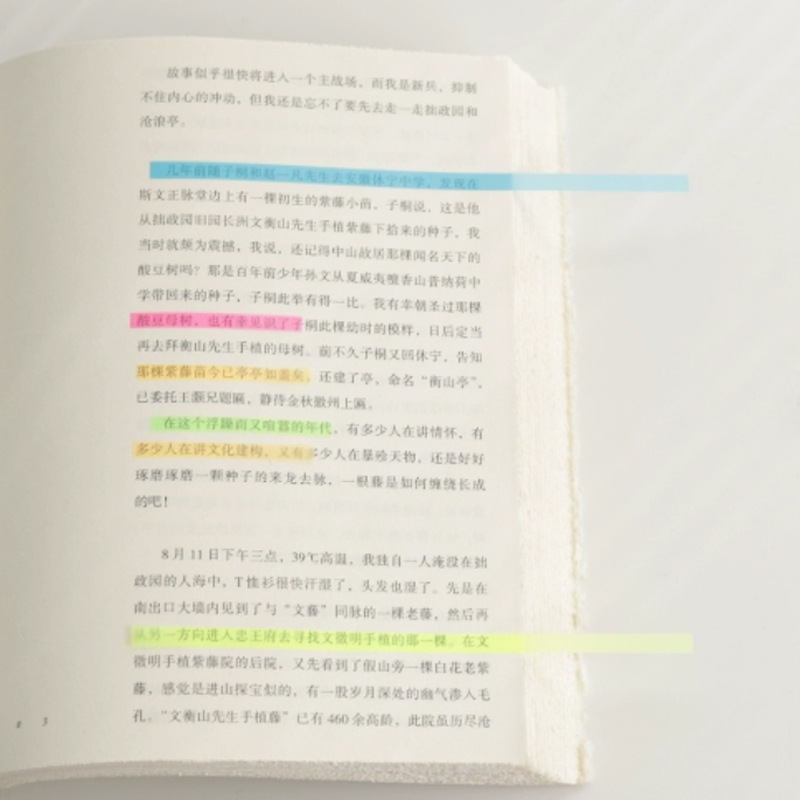 故事似乎很快将进入一个主战场，而我是新兵，抑制
不住内心的冲动，但我还是忘不了要先去走一走拙政园和
沧浪亭。
几年前随子桐和赵一凡先生去安徽休宁中学，发现在
斯文正脉堂边上有一棵初生的紫藤小苗，子桐说，这是他
从拙政园旧园长洲文衡山先生手植紫藤下拾来的种子，我
当时就颇为震撼，我说，还记得中山故居那棵闻名天下的
酸豆树吗？那是百年前少年孙文从夏威夷檀香山普纳荷中
学带回来的种子，子桐此举有得一比。我有幸朝圣过那棵
酸豆母树，也有幸见识了子桐此棵幼时的模样，日后定当
再去拜衡山先生手植的母树。前不久子桐又回休宁，告知
那棵紫藤苗今已亭亭如盖矣，还建了亭，命名“衡山亭”，
已委托王灏兄题匾，静待金秋徽州上匾。
在这个浮躁而又喧嚣的年代，有多少人在讲情怀，有
多少人在讲文化建构，又有多少人在暴殄天物，还是好好
琢磨琢磨一颗种子的来龙去脉，一根藤是如何缠绕长成
的吧！
8月11日下午三点，39℃高温，我独自一人淹没在拙
政园的人海中，T恤衫很快汗湿了，头发也湿了。先是在
南出口大墙内见到了与“文藤”同脉的一棵老藤，然后再
从另一方向进入忠王府去寻找文徵明手植的那一棵。在文
徵明手植紫藤院的后院，又先看到了假山旁一棵白花老紫
藤，感觉是进山探宝似的，有一股岁月深处的幽气渗入毛
孔。“文衡山先生手植藤”已有460余高龄，此院虽历尽沧
3